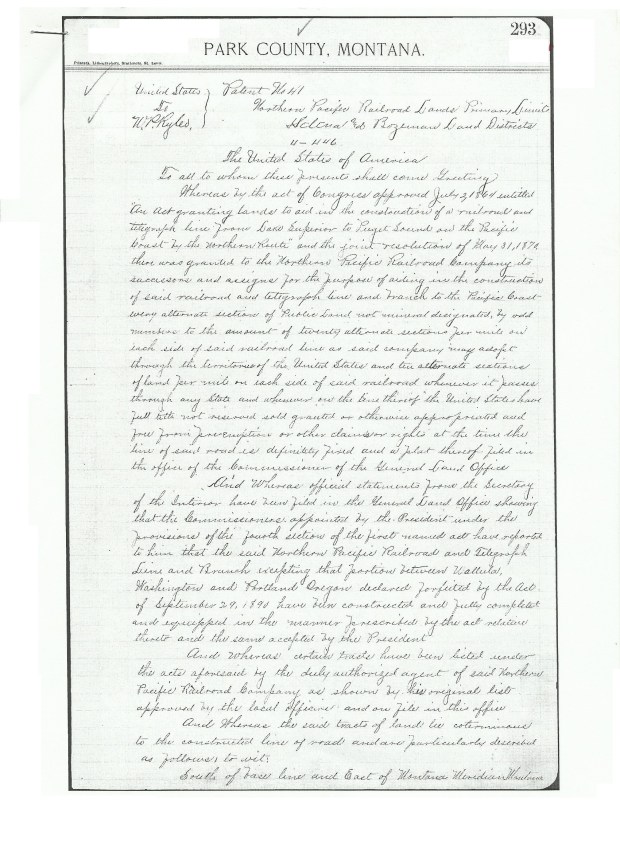 293
PARK COUNTY, MONTANA.
United States
To
N.P.Ry Co,
Patent No 41
Northern Pacific Railroad Lands Primary Limits
Helena and Bozeman Land Districts
11-446
The United States of America
To all to whom these presents shall come Greeting
Whereas by the act of Congress approved July 2, 1864 entitled
"An Act granting lands to aid in the construction of a railroad and
telegraph line from Lake Superior to Puget Sound on the Pacific
Coast by the Northern Route" and the joint resolution of May 31, 1870
there was granted to the Northern Pacific Railroad Company its
successors and assigns for the purpose of aiding in the construction
of said railroad and telegraph line and branch to the Pacific Coast
every alternate section of Public Land not mineral designated, by odd
numbers to the amount of twenty alternate sections per mile on
each side of said railroad line as said company may adopt
through the territories of the United States and ten alternate sections
of land per mile on each side of said railroad whenever it passes
through any State and whenever on the line thereof the United States have
full title not reserved sold granted or otherwise appropriated and
free from preemption or other claims or rights at the time the
line of said road is definitely fixed and a plat thereof filed in
the office of the Commissioner of the General Land Office
And Whereas official statements from the Secretary
of the Interior have been filed in the General Land Office showing
that the Commissioners appointed by the President under the
provisions of the fourth section of the first named act have reported
to him that the said Northern Pacific Railroad and Telegraph
Line and Branch excepting that portion between Wallula,
Washington and Portland Oregon declared forfeited by the Act
of September 29, 1890 have been constructed and fully completed
and equipped in the manner prescribed by the act relative
thereto and the same accepted by the President
And Whereas certain tracts have been listed under
the acts aforesaid by the duly authorized agent of said Northern
Pacific Railroad Company as shown by his original list
approved by the local officers and on file in this office
And Whereas the said tracts of land lie coterminous
to the constructed line of road and are particularly described
as follows, to wit:
South of base line and East of Montana Meridian Montana